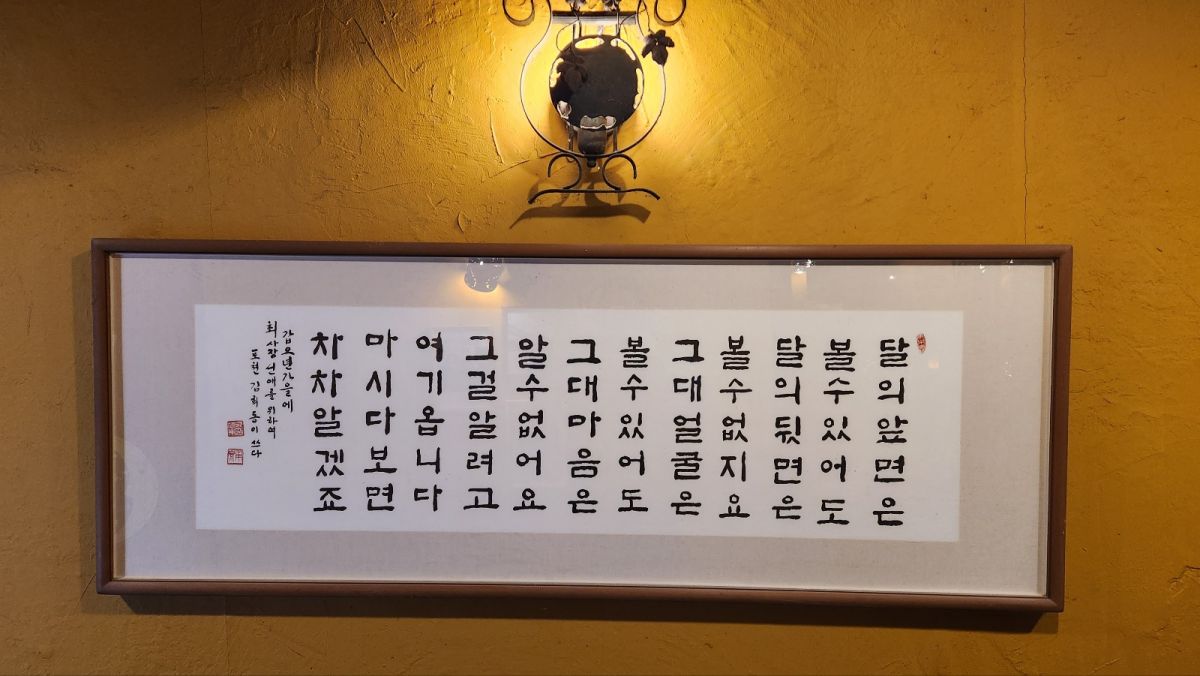 달의앞면은
볼수있어도
달의뒷면은
볼수없지요
그대얼굴은
볼수있어도
그대마음은
알수없어요
그걸알려고
여기옵니다
마시다보면
차차알겠죠
갑오년가을에
최사장 선애를 위하여
김희동이 쓰다